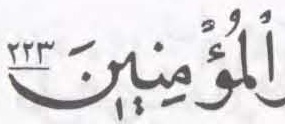 ٱلْمُؤْمِنِينَ ٢٢٣